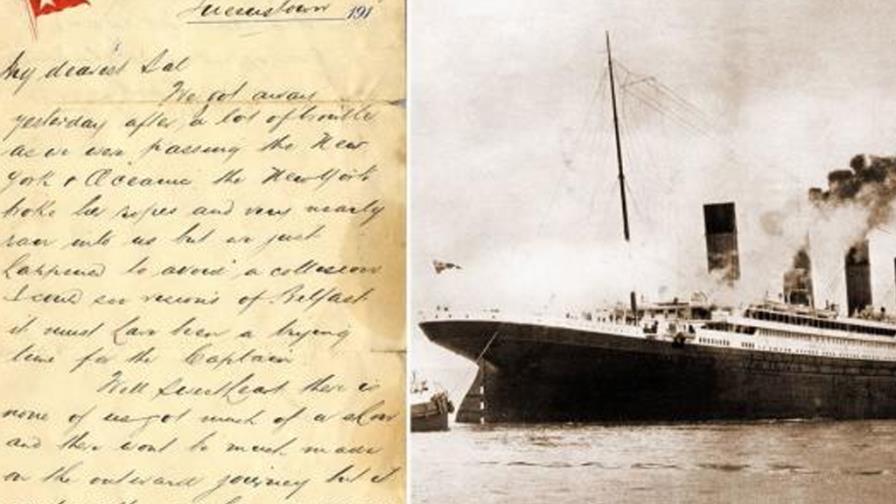 Queenstown 191
My dearest Sal
We got away
yesterday after a lot of trouble
as we were passing the New
York & Oceanic the New York
broke her ropes and very nearly
ran into us but we just
happened to avoid a collision
I could see visions of Belfast
it must have been a trying
time for the Captain
Well Sweetheart there is
none of us got much of a show
and there wont be much made
on the outward journey but it